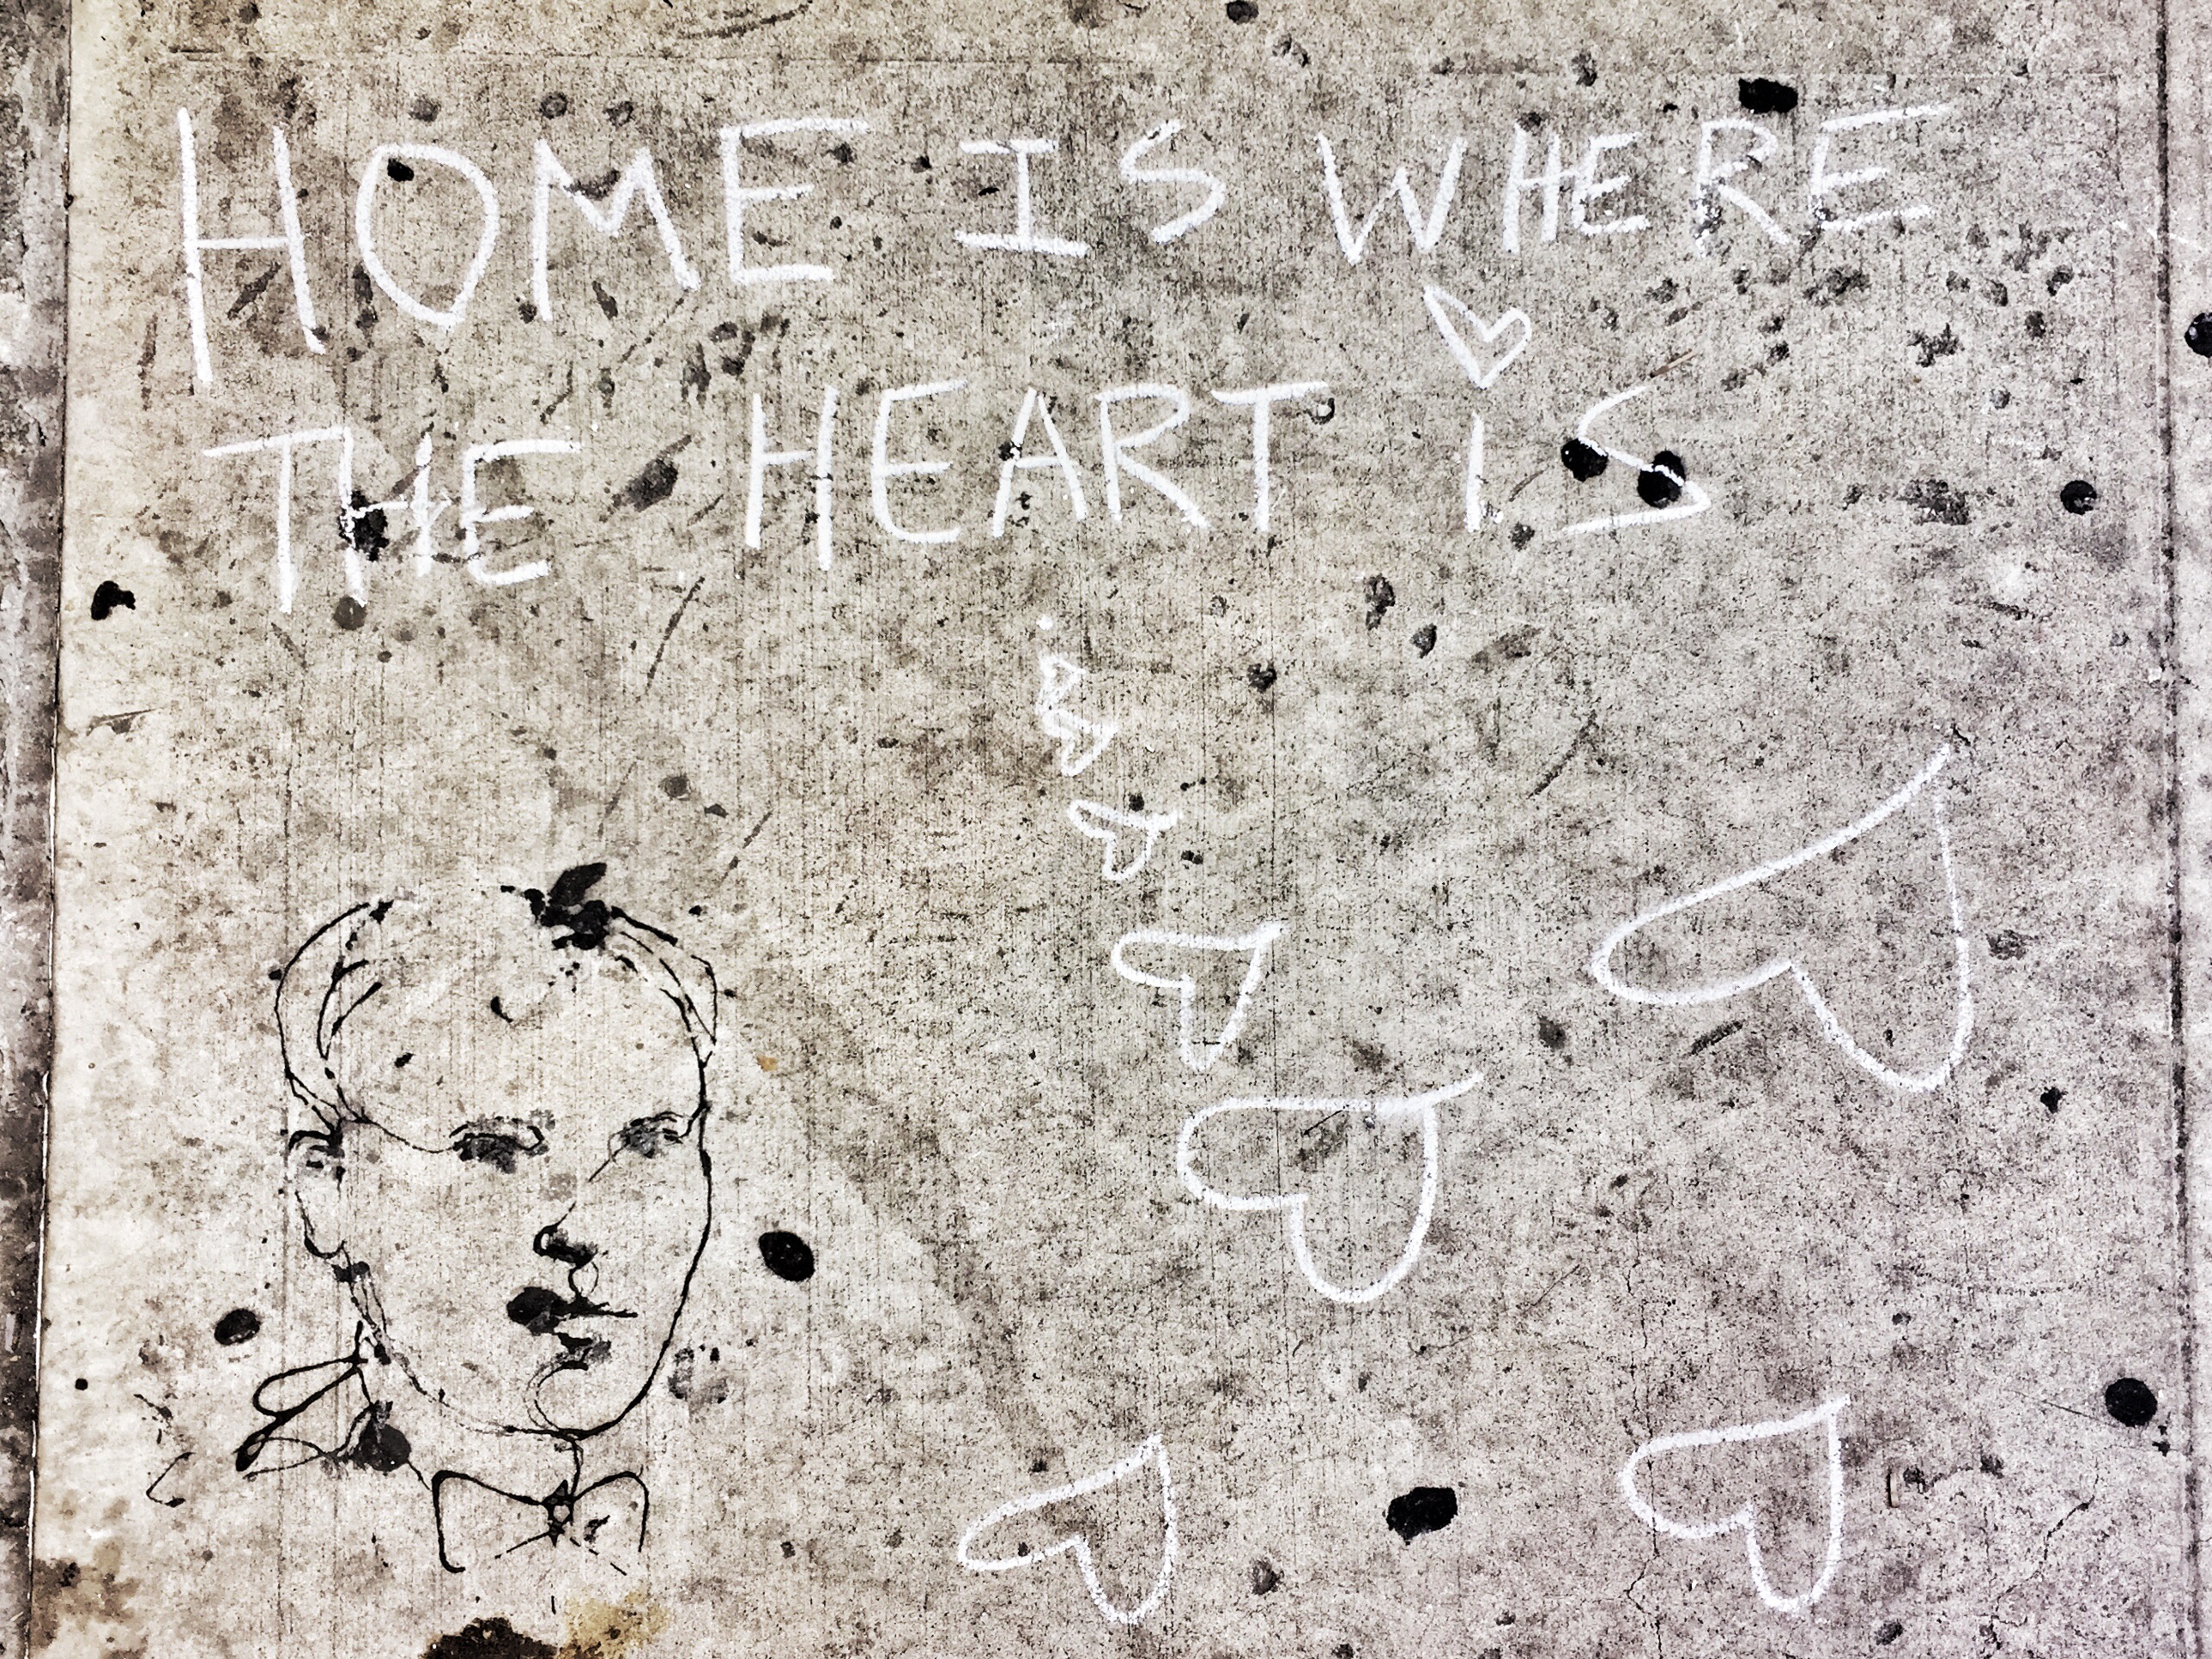 HOME IS WHERE
THE HEART iS